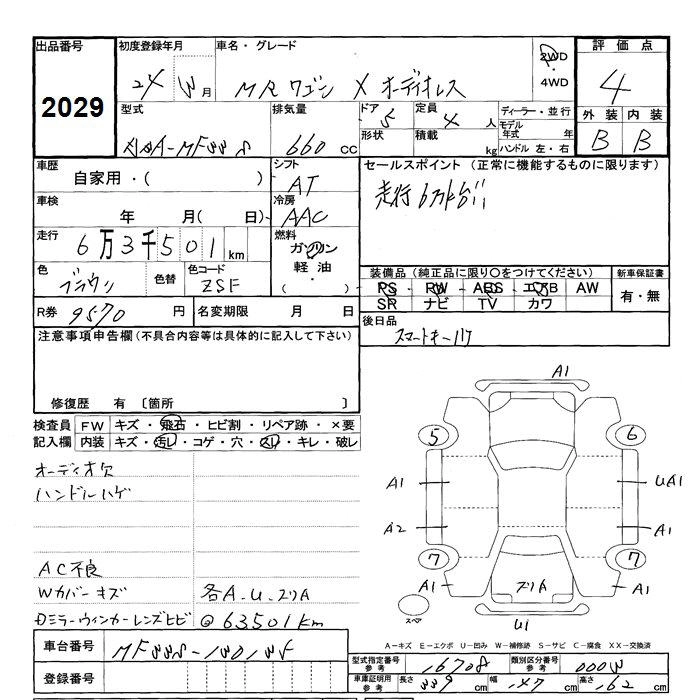 出品番号 初度登録年月 車名・グレード 評価点
2029
24 月 MRワゴン X オーディオレス 2WD
・
4WD
4
型式 排気量 ドア 5 定員 4 人 ディーラー・並行 外装 内装
660 cc 形状 積載 kg モデル年式 年
ハンドル 左・右
B B
車歴 シフト セールスポイント(正常に機能するものに限ります)
自家用・( ) AT
走行6万km台!!
車検 冷房
年 月( 日) AAC
走行 燃料
6万3千501km ガソリン
・
軽油
( )
色 色替 色コード 装備品(純正品に限り○をつけてください) 新車保証書
ブラウン ZSF PS PW ABS エアB AW 有・無
SR ナビ TV カワ
R券 9570 円 名変期限 月 日 後日品
スマートキー
注意事項申告欄(不具合内容等は具体的に記入して下さい)
修復歴 有 〔箇所 〕
検査員 FW キズ・飛石・ヒビ割・リペア跡・×要
記入欄 内装 キズ・汚レ・コゲ・穴・スレ・キレ・破レ
オーディオ欠
ハンドルハゲ
AC不良
Wカバーキズ 各A.U.スリA
Dミラーウィンカーレンズヒビ @63501km
A1
5 6
A1 UA1
A2 A1
7 7
A1 スリA A1
スペア U1
A-キズ E-エクボ U-凹み W-補修跡 S-サビ C-腐食 XX-交換済
車台番号
登録番号
型式指定番号 参考 16708 類別区分番号 参考
車庫証明用 参考 長さ 339 cm 幅 147 cm 高さ 162 cm